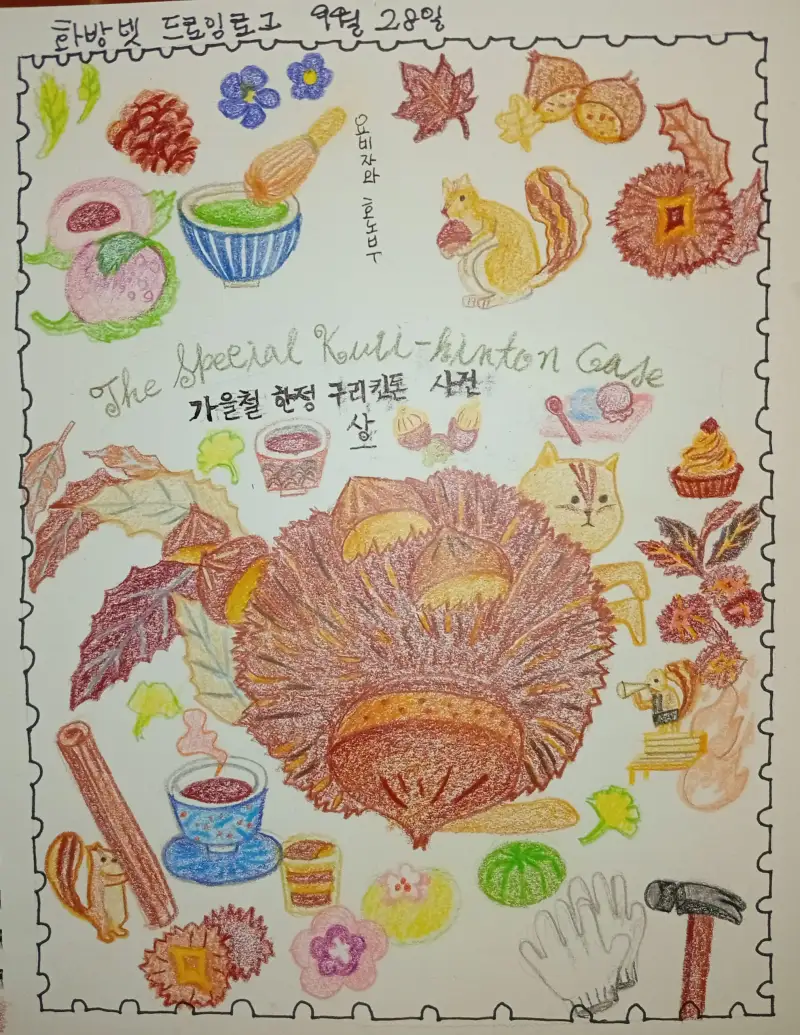 화방넷 드로잉로그 9월 28일
요비자와 호노부
The Special Kuri-kinton Case
가을철 한정 구리킨톤 사건
상